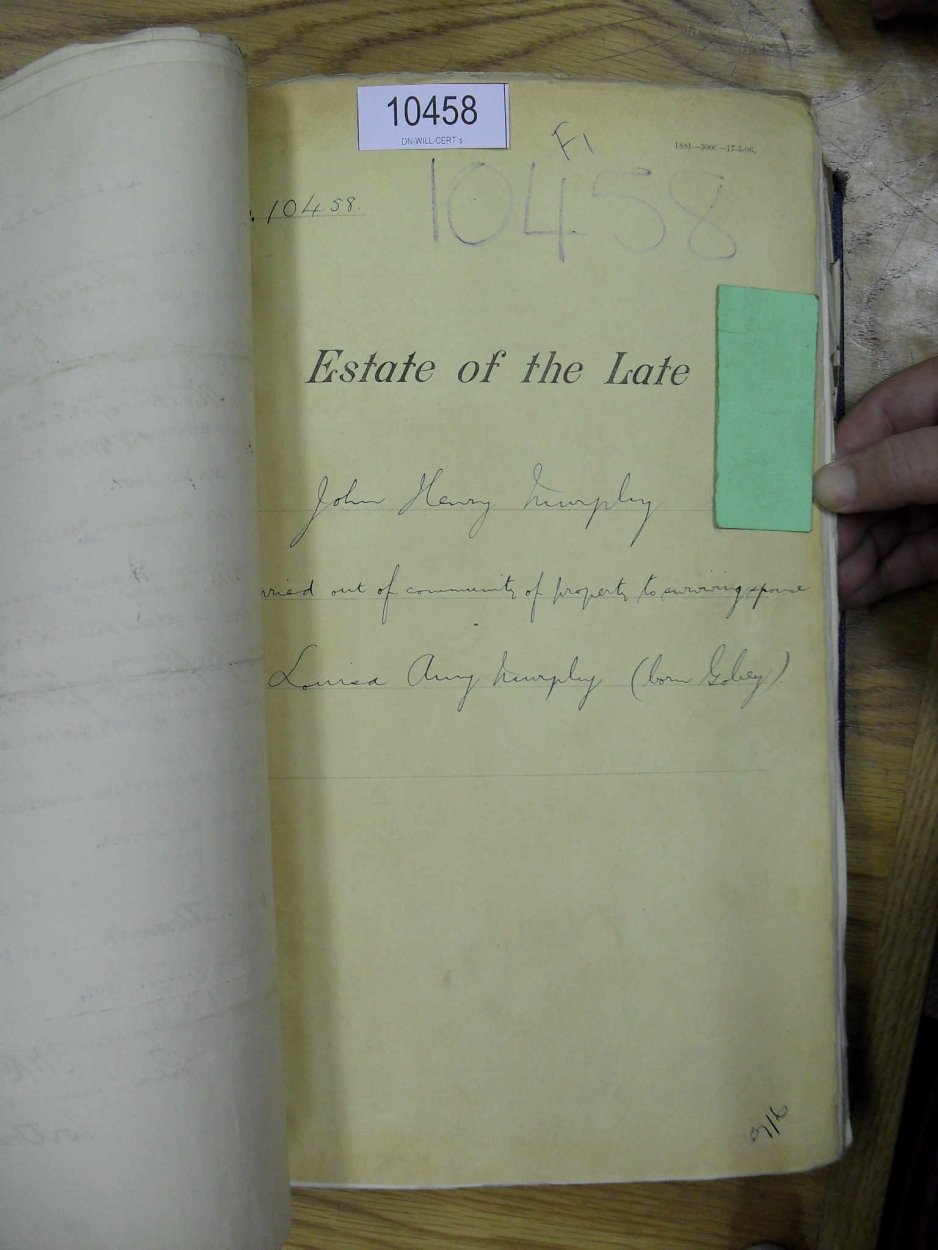 10458
DN-WILL-CERT's
F1
1881—3000—17-5-06.
10458
. 10458
Estate of the Late
John Henry Murphy
rried out of community of property to surviving spouse
Louisa Amy Murphy (born Gobey)